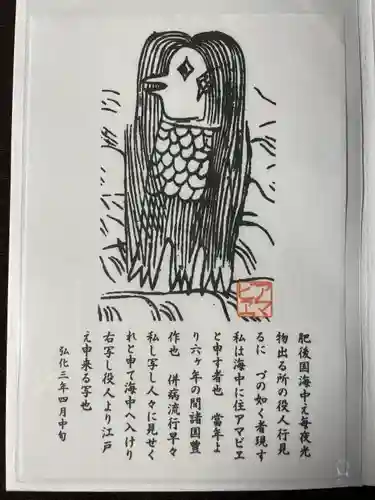 肥後国海中え毎夜光
物出る所の役人行見
るに　づの如く者現す
私は海中に住アマビエ
と申す者也　當年よ
り六ヶ年の間諸国豊
作也　併病流行早々
私し写し人々に見せく
れと申て海中へ入けり
右写し役人より江戸
え申来る写也
弘化三年四月中旬
アマ
ビエ